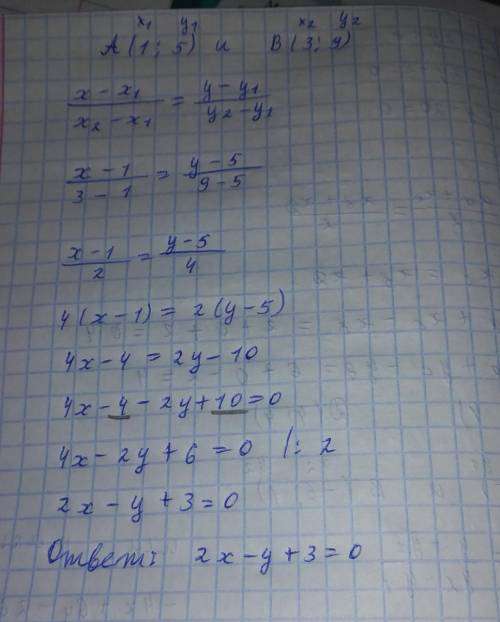 x₁ y₁ x₂ y₂
A (1; 5) и B (3; 9)
(x - x₁)/(x₂ - x₁) = (y - y₁)/(y₂ - y₁)
(x - 1)/(3 - 1) = (y - 5)/(9 - 5)
(x - 1)/2 = (y - 5)/4
4(x - 1) = 2(y - 5)
4x - 4 = 2y - 10
4x - 4 - 2y + 10 = 0
4x - 2y + 6 = 0 /: 2
2x - y + 3 = 0
Ответ: 2x - y + 3 = 0